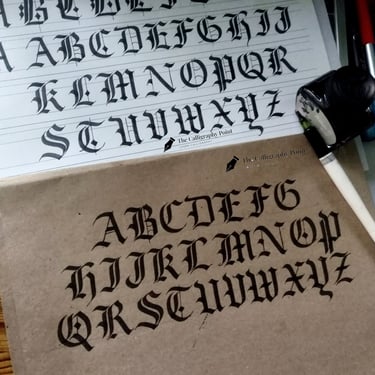 ABCDEFGHIJ
KLMNOPQR
STUVWXYZ
The Calligraphy Point
The Calligraphy Point
ABCDEFG
HIJKLMNOP
QRSTUVWXYZ